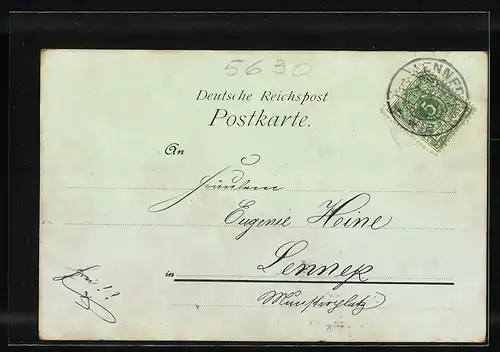 5630
LENNEP
Deutsche Reichspost
Postkarte.
5
An
Fräulein
Eugenie Heine
in Lennep
Münsterplatz
frei!?